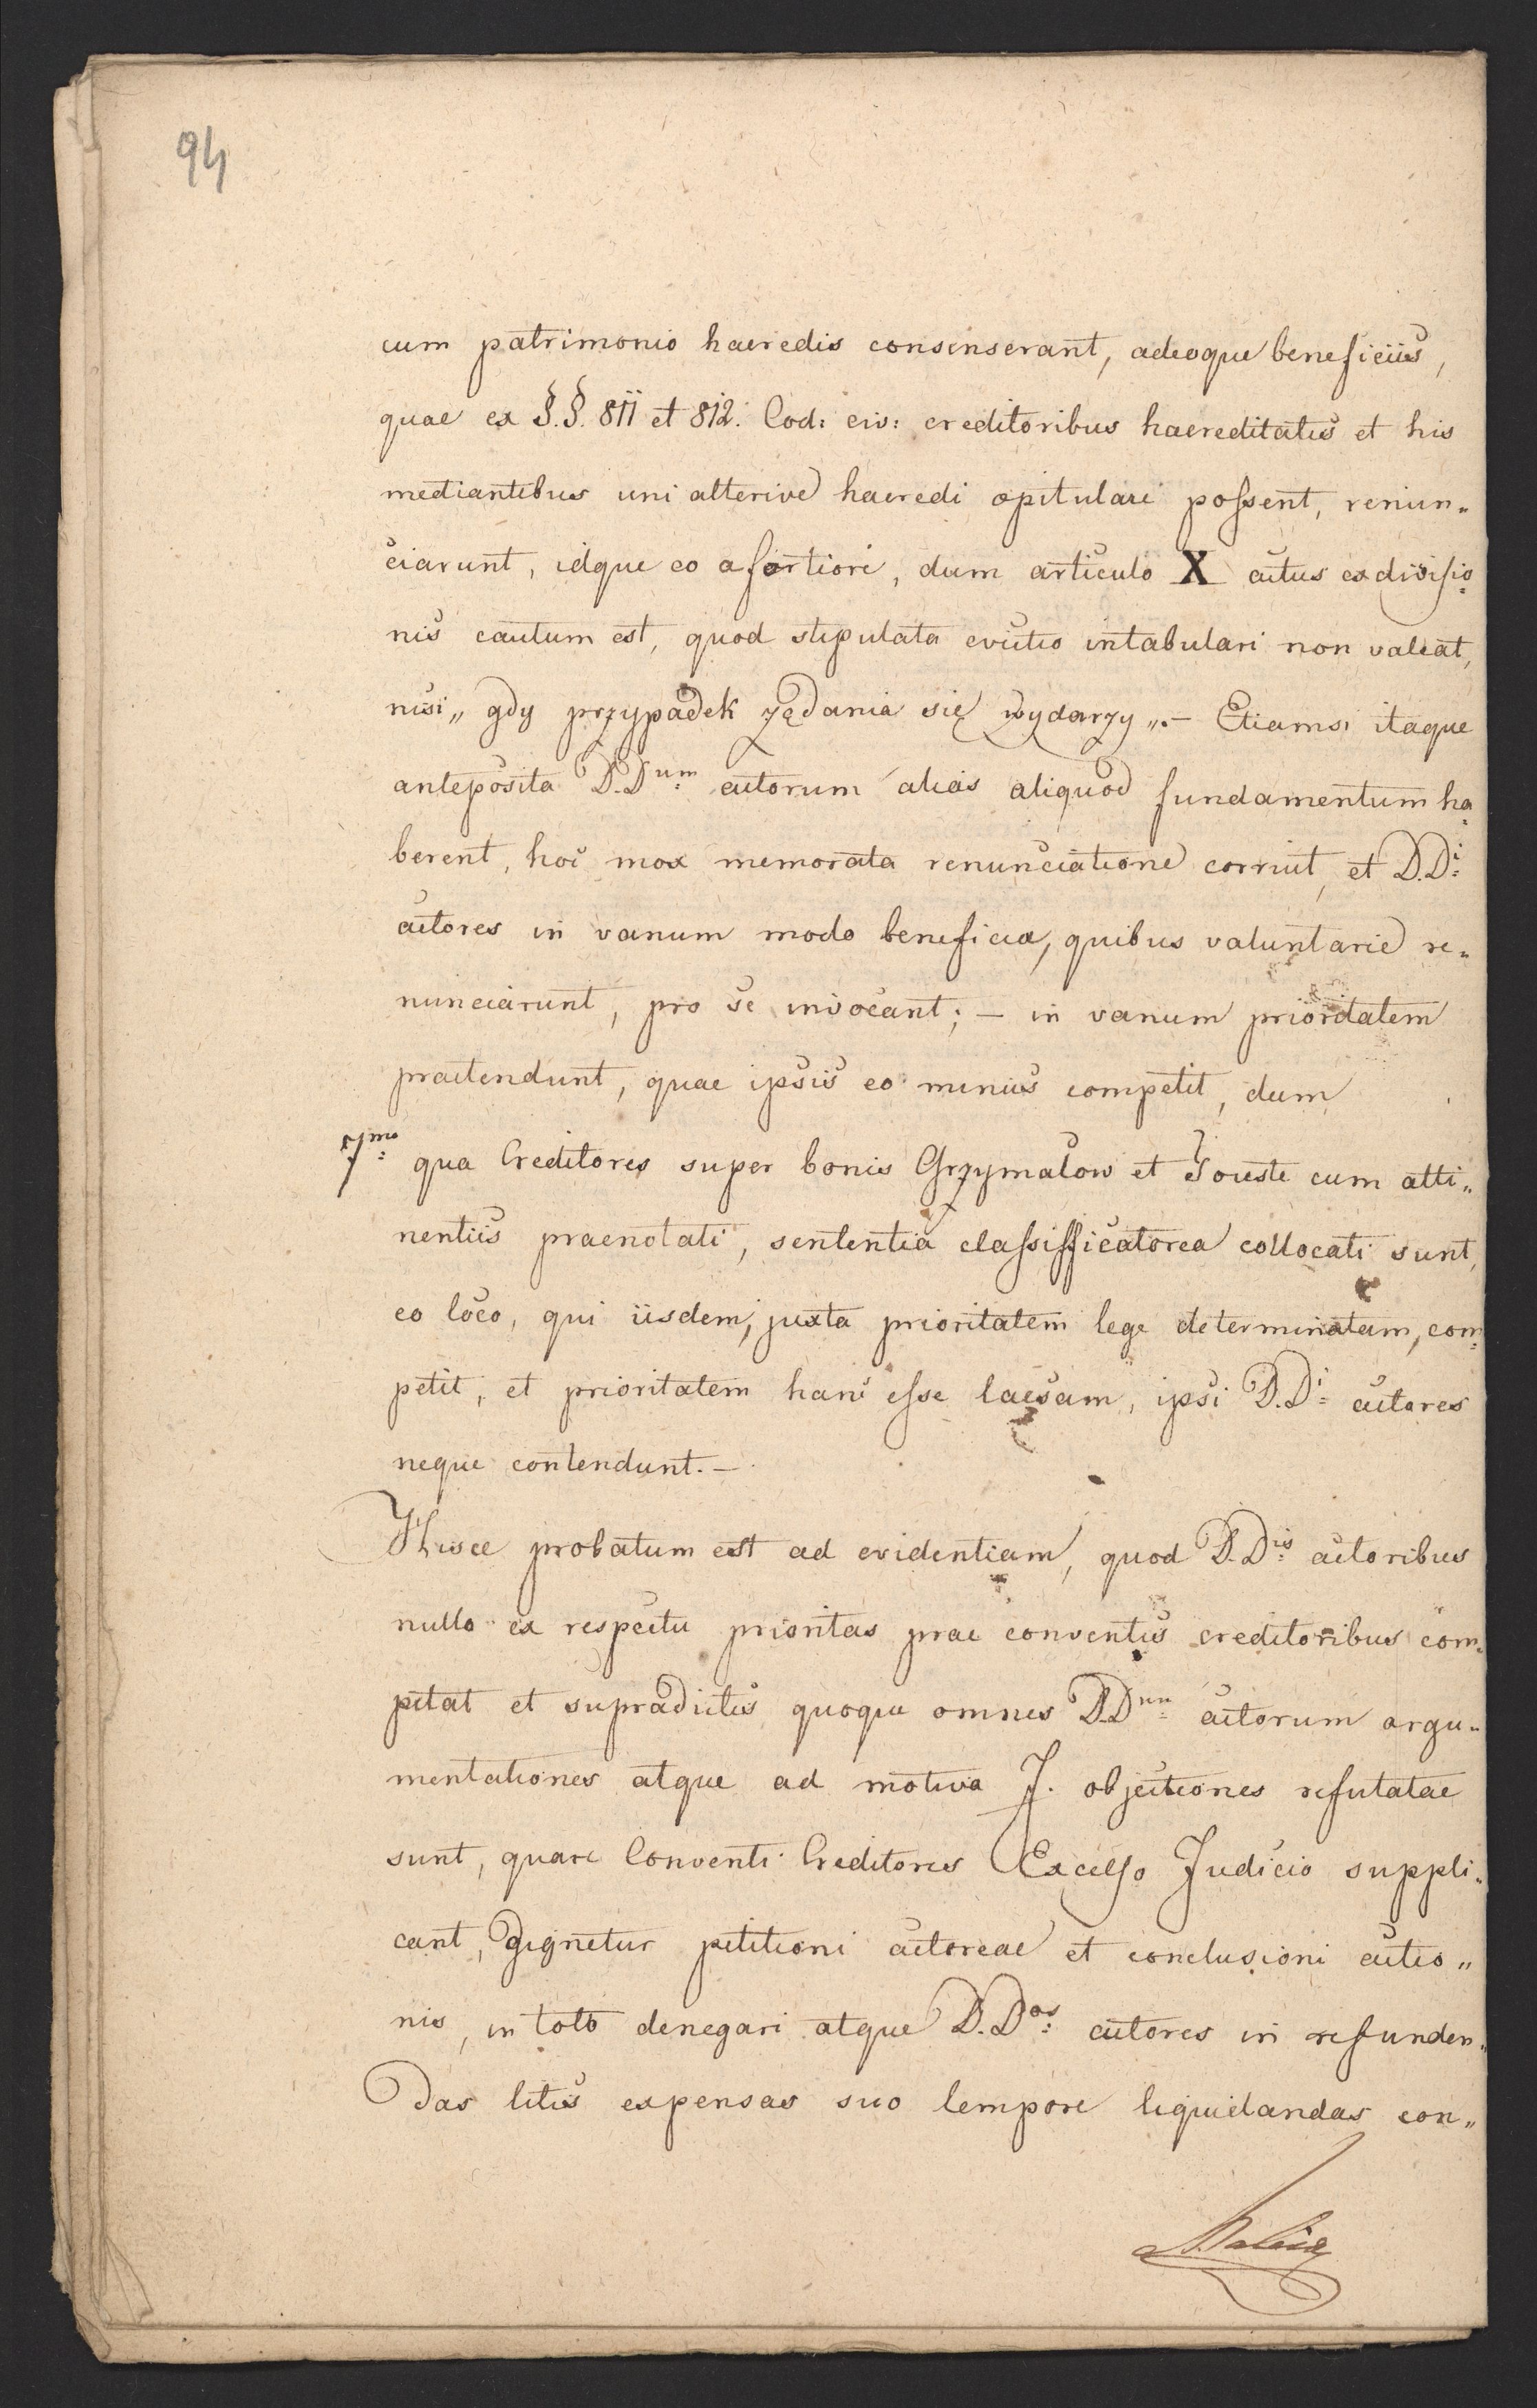 94
cum patrimonio haeredis consenserant, adeoque beneficiis,
quae ex §.§. 811 et 812. Cod: civ: creditoribus haereditatis et his
mediantibus uni alterive haeredi opitulari possent, renun„
ciarunt, idque eo a fortiori, dum articulo X actus exdivisio„
nis cautum est, quod stipulata evictio intabulari non valeat,
nisi „ gdy przypadek żądania się wydarzy „.— Etiamsi itaque
anteposita D.Dum actorum alias aliquod fundamentum ha„
berent, hoc mox memorata renunciatione corruit, et D.Di
actores in vanum modo beneficia, quibus voluntarie re„
nunciarunt, pro se invocant; — in vanum prioritatem
praetendunt, quae ipsis eo minus competit, dum
7mo qua Creditores super bonis Grzymałow et Touste cum atti„
nentiis praenotati, sententia classifficatorea collocati sunt,
eo loco, qui iisdem, juxta prioritatem lege determinatam, com„
petit, et prioritatem hanc esse laesam, ipsi D.Di actores
neque contendunt. —
Hisce probatum est ad evidentiam, quod D.Dis actoribus
nullo ex respectu prioritas prae conventis creditoribus com„
petat et supradictis quoque omnes D.Dum actorum argu„
mentationes atque ad motiva J. objectiones refutatae
sunt, quare Conventi Creditores Excelso Judicio suppli„
cant, dignetur petitioni actoreae et conclusioni actio„
nis, in toto denegari atque D.Dos actores in refunden„
das litis expensas suo tempore liquidandas con„